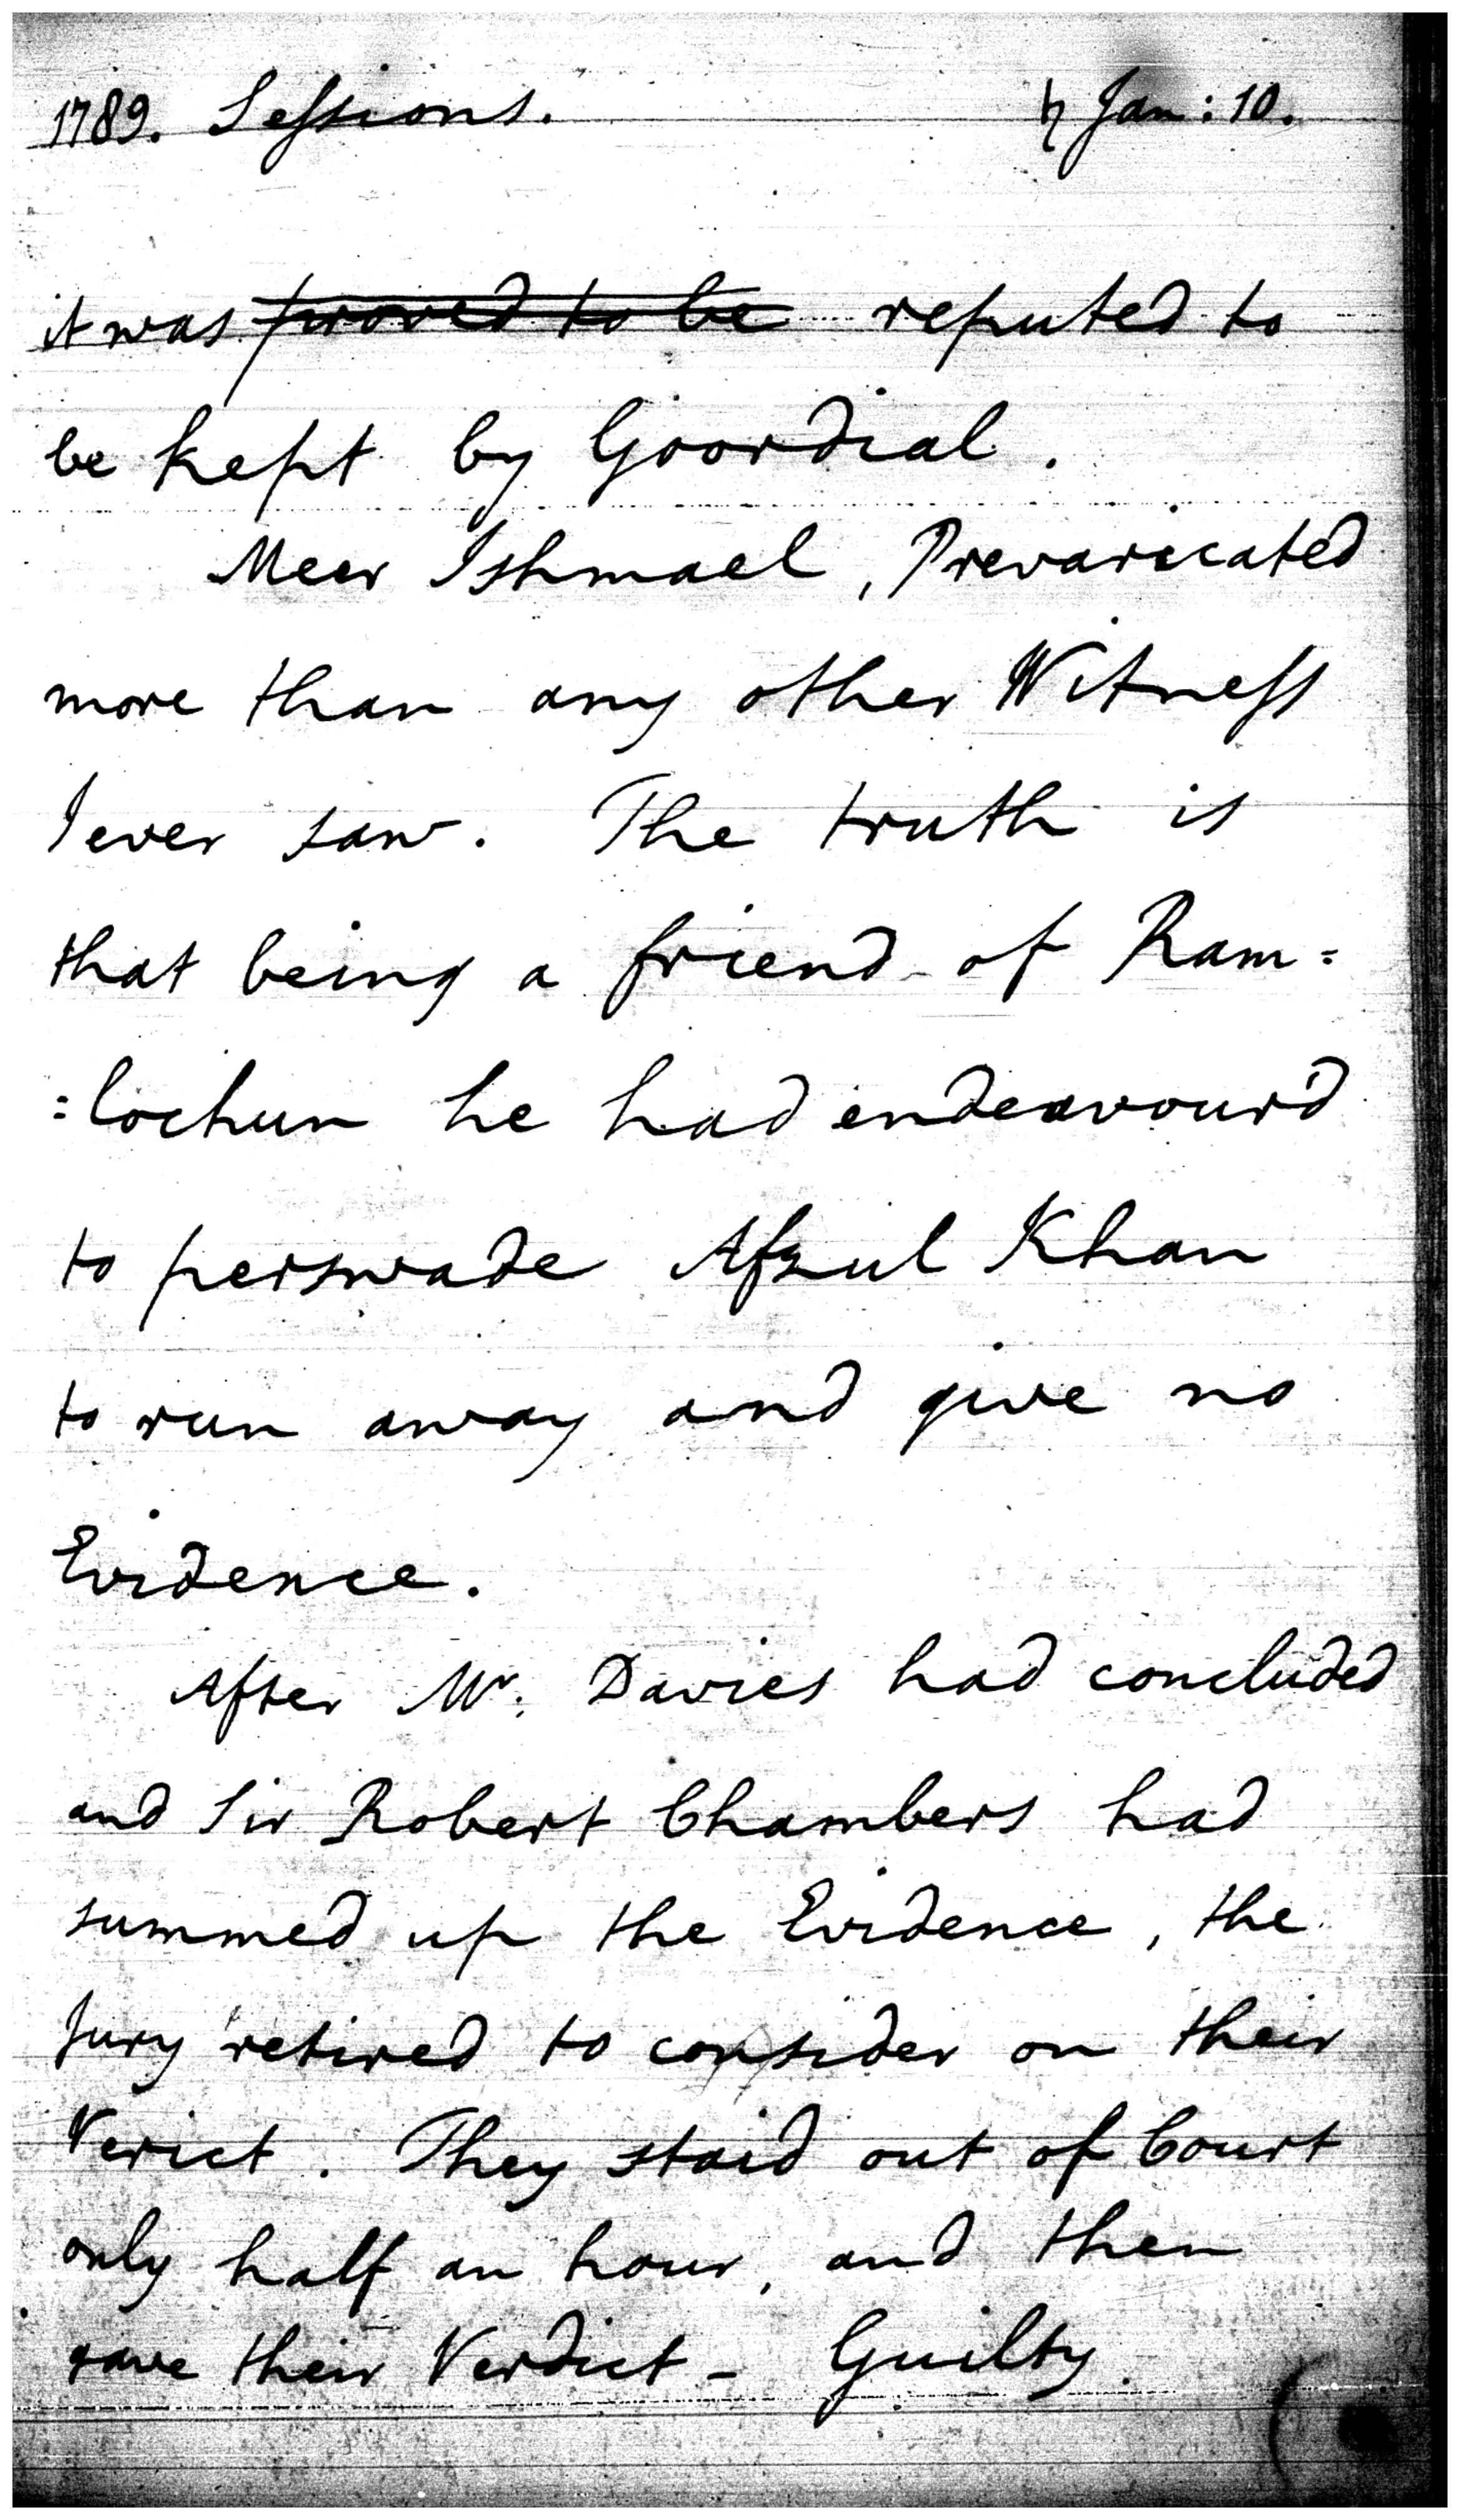 1789. Sessions. ♄ Jan: 10.
it was proved to be reputed to
be kept by Goordial.
Meer Ishmael, Prevaricated
more than any other Witness
I ever saw. The truth is
that being a friend of Ram=
=lochun he had endeavourd
to perswade Afzul Khan
to run away and give no
Evidence.
After Mr. Davies had concluded
and Sir Robert Chambers had
summed up the Evidence, the
Jury retired to consider on their
Verict. They staid out of Court
only half an hour, and then
gave their Verdict - Guilty.